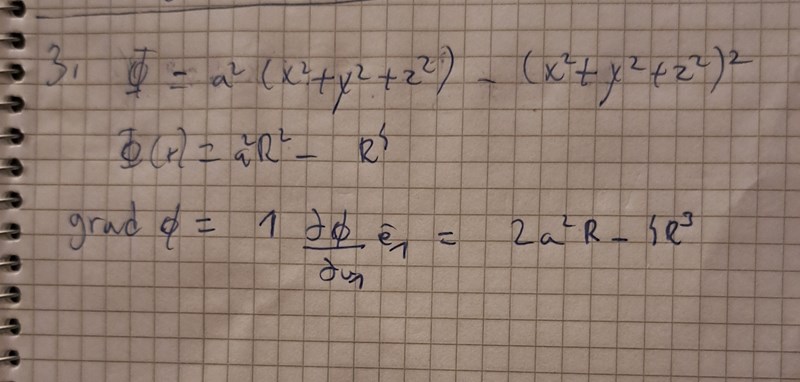 3, Φ = a² (x²+y²+z²) - (x²+y²+z²)²
Φ(r) = a²R² - R⁴
grad ϕ = 1 ∂ϕ/∂u₁ ē₁ = 2a²R - 4R³